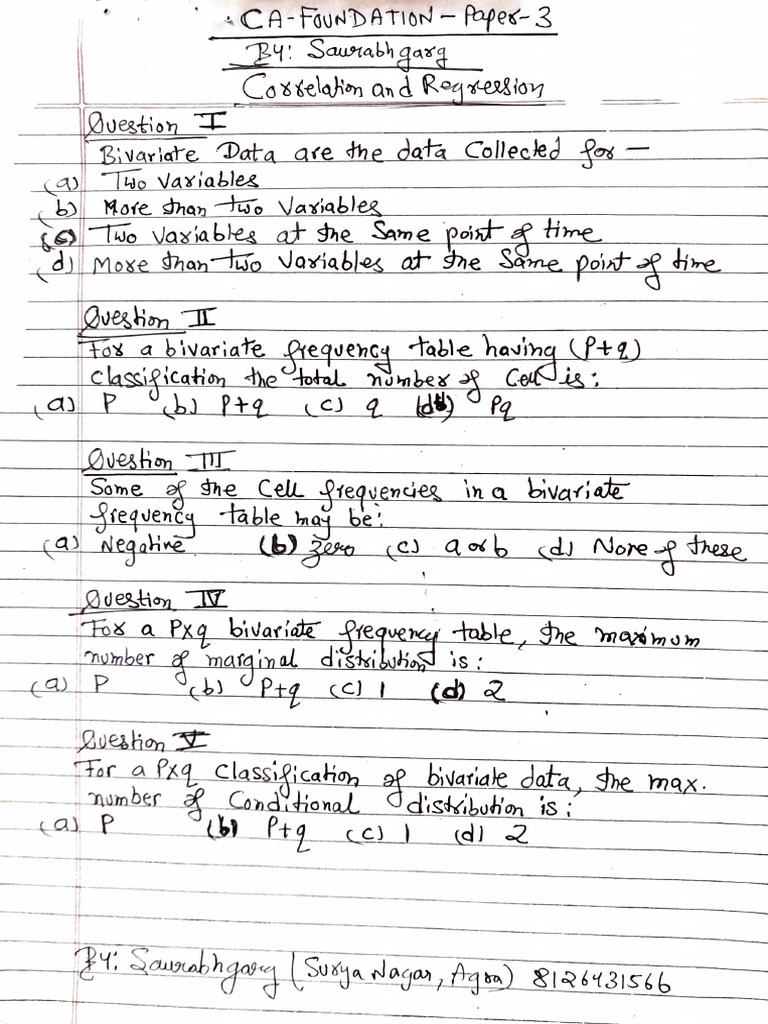 CA-FOUNDATION - Paper-3
BY: Saurabhgarg
Correlation and Regression
Question I
Bivariate Data are the data Collected for —
(a) Two variables
(b) More than two Variables
(c) Two Variables at the Same point of time
(d) More than two Variables at the Same point of time
Question II
For a bivariate frequency table having (P+q)
Classification the total number of Cell is:
(a) P (b) P+q (c) q (d) Pq
Question III
Some of the Cell frequencies in a bivariate
frequency table may be:
(a) Negative (b) Zero (c) a or b (d) None of these
Question IV
For a Pxq bivariate frequency table, the maximum
number of marginal distribution is:
(a) P (b) P+q (c) 1 (d) 2
Question V
For a Pxq Classification of bivariate data, the max.
number of Conditional distribution is:
(a) P (b) P+q (c) 1 (d) 2
BY: Saurabhgarg (Surya Nagar, Agra) 8126431566